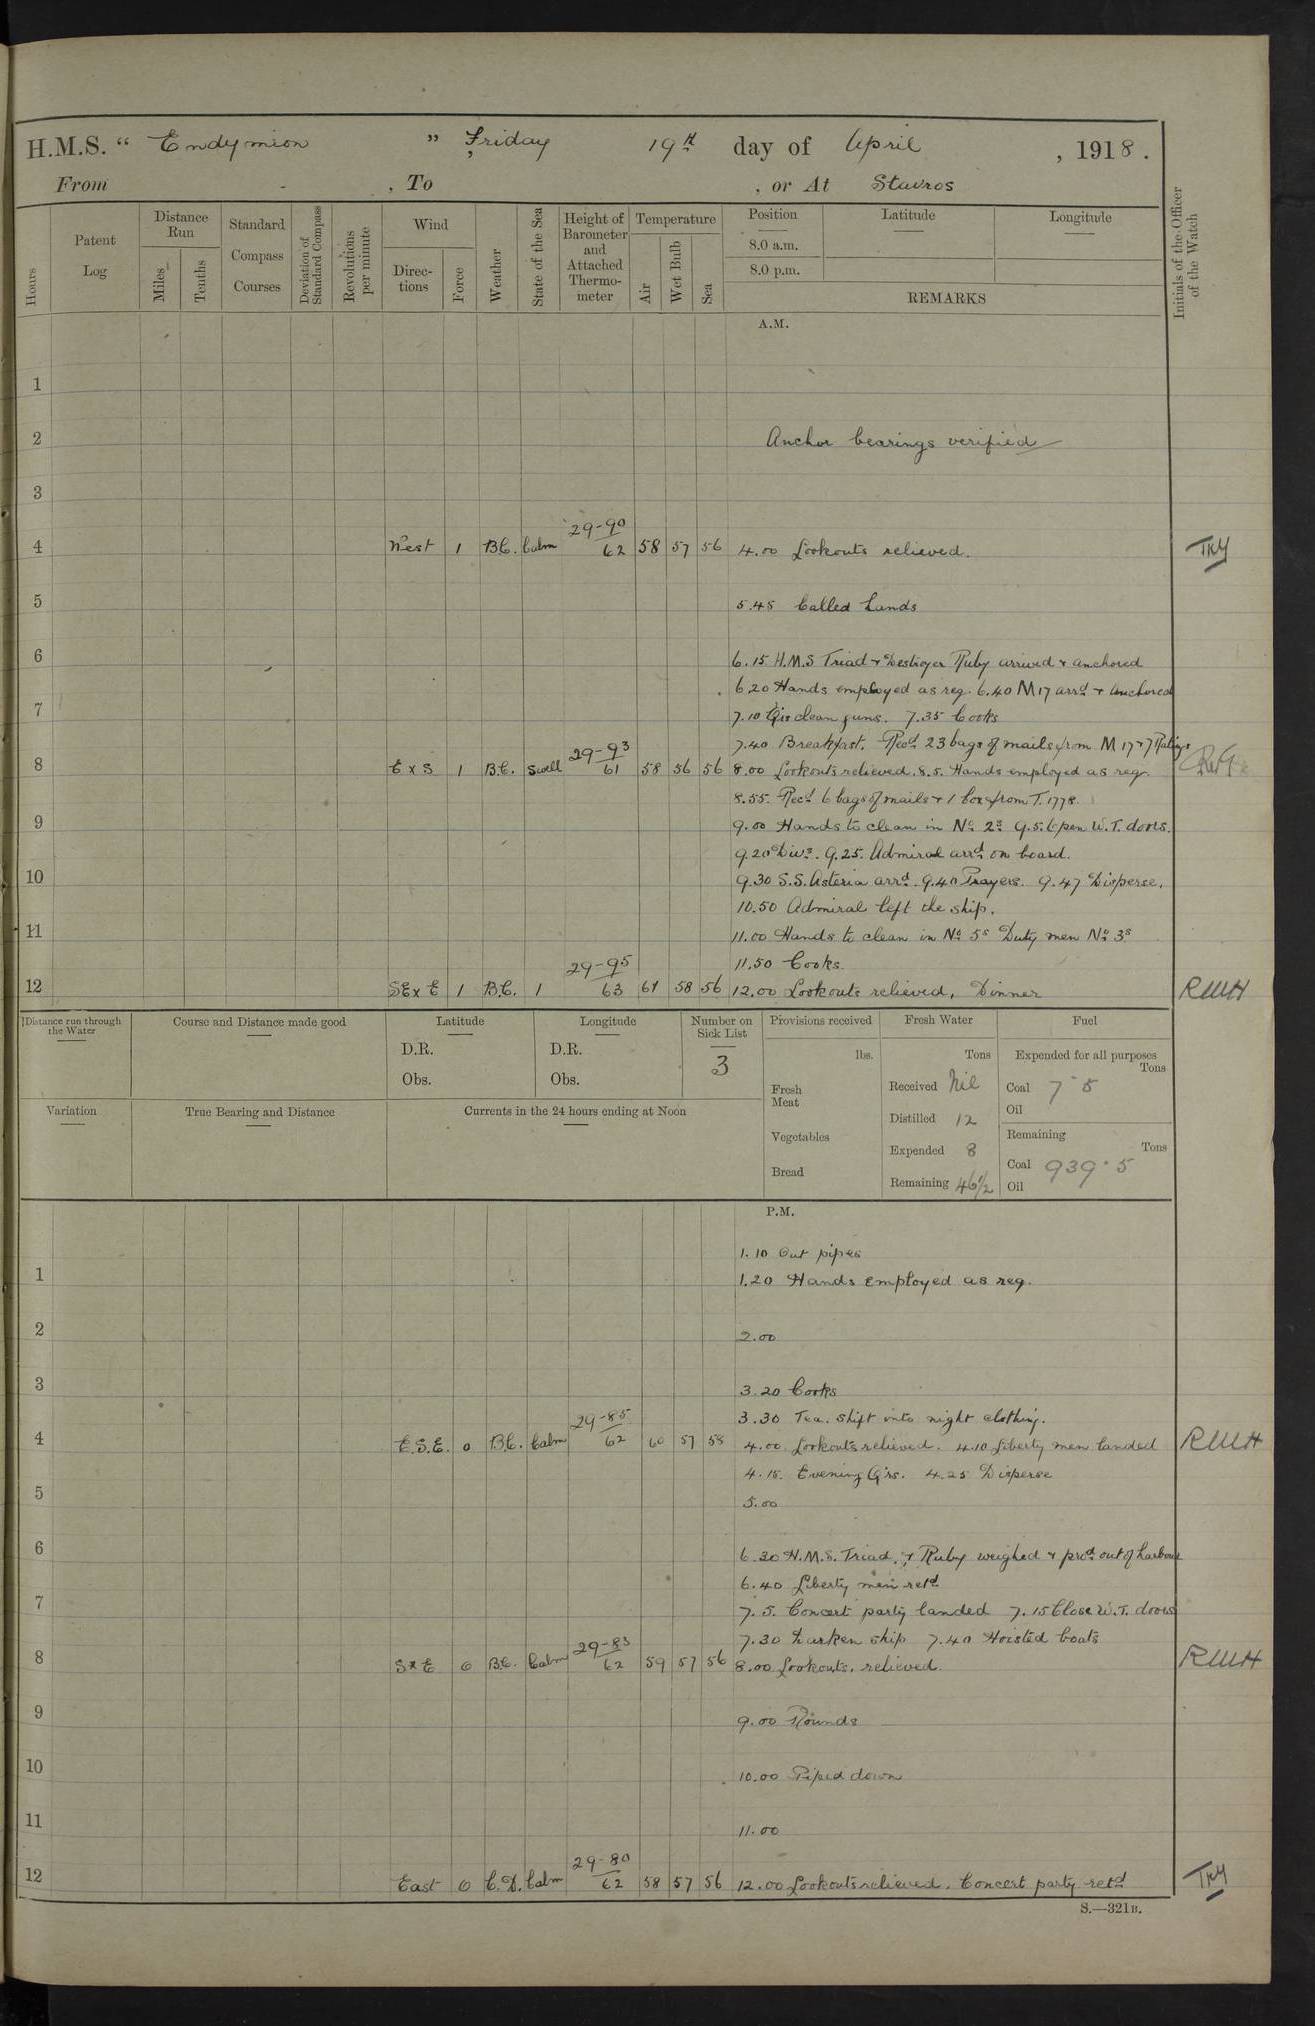 H.M.S. “ Endymion ” Friday 19th day of April , 1918.
From - , To , or At Stavros
Hours
Patent Log
Distance Run
Miles
Tenths
Standard Compass Courses
Deviation of Standard Compass
Revolutions per minute
Wind
Direc-tions
Force
Weather
State of the Sea
Height of Barometer and Attached Thermo-meter
Temperature
Air
Wet Bulb
Sea
Position
8.0 a.m.
8.0 p.m.
Latitude
Longitude
REMARKS
Initials of the Officer of the Watch
A.M.
1
2 Anchor bearings verified
3
29-90
4 West 1 B.C. Calm 62 58 57 56 4.00 Lookouts relieved. TKY
5 5.45 Called hands
6 6.15 H.M.S Triad + Destroyer Ruby arrived + anchored
6.20 Hands employed as req. 6.40 M17 arrd + anchored
7 7.10 Qrs clean guns. 7.35 Cooks
29-93 7.40 Breakfast. Recd 23 bags of mails from M 17 + 7 Ratings
8 E x S 1 B.C. Swell 61 58 56 56 8.00 Lookouts relieved. 8.5. Hands employed as req.
8.55. Recd 6 bags of mails + 1 box from T. 1778.
9 9.00 Hands to clean in No 2s 9.5. Open W.T. doors.
9.20 Divs. 9.25. Admiral arrd on board.
10 9.30 S.S. Asteria arrd. 9.40 Prayers. 9.47 Disperse.
10.50 Admiral left the ship.
11 11.00 Hands to clean in No 5s Duty men No 3s
29-95 11.50 Cooks.
12 SE x E 1 B.C. 1 63 61 58 56 12.00 Lookouts relieved, Dinner RWH
Distance run through the Water
Course and Distance made good
Latitude
D.R.
Obs.
Longitude
D.R.
Obs.
Number on Sick List
3
Provisions received
lbs.
Fresh Meat
Vegetables
Bread
Fresh Water
Tons
Received Nil
Distilled 12
Expended 8
Remaining 46 1/2
Fuel
Expended for all purposes
Tons
Coal 7·5
Oil
Remaining
Tons
Coal 939·5
Oil
Variation
True Bearing and Distance
Currents in the 24 hours ending at Noon
P.M.
1.10 Out pipes
1 1.20 Hands employed as req.
2 2.00
3 3.20 Cooks
29-85 3.30 Tea. Shift into night clothing.
4 E.S.E. 0 B.C. Calm 62 60 57 58 4.00 Lookouts relieved. 4.10 Liberty men landed RWH
4.15. Evening Qrs. 4.25 Disperse
5 5.00
6 6.30 H.M.S. Triad, + Ruby weighed + procd out of harbour
6.40 Liberty men retd
7 7.5. Concert party landed 7.15 Close W.T. doors
29-83 7.30 Darken ship 7.40 Hoisted boats
8 S x E 0 B.C. Calm 62 59 57 56 8.00 Lookouts. relieved. RWH
9 9.00 Rounds
10 10.00 Piped down
11 11.00
29-80
12 East 0 C.D. Calm 62 58 57 56 12.00 Lookouts relieved. Concert party retd TKY
S.—321B.